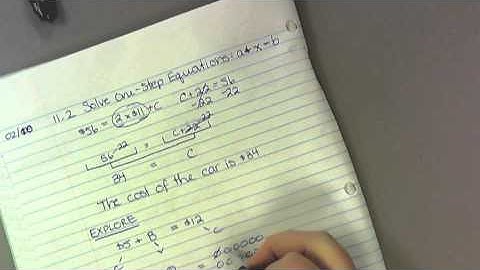 02/10
11.2 Solve One-Step Equations: a+x=b
$56 = 2 x $11 + C C + 22 = 56
-22 -22
56 -22 = C + 22 -22
34 = C
The cost of the car is $34
EXPLORE
$5 + B = $12
C V C